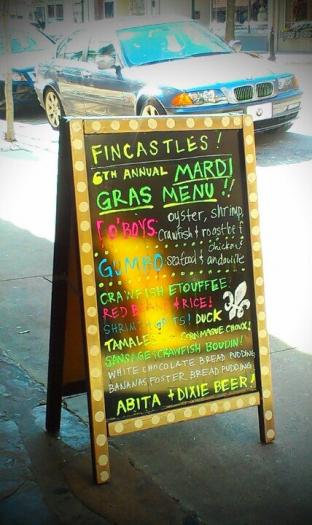 FINCASTLES!
6TH ANNUAL MARDI
GRAS MENU!!
PO'BOYS: oyster, shrimp,
crawfish & roast beef
GUMBO chicken &
seafood & andouille
CRAWFISH ETOUFFEE
RED BEANS & RICE!
SHRIMP & GRITS! DUCK
TAMALES CORN MAQUE CHOUX!
SAUSAGE CRAWFISH BOUDIN!
WHITE CHOCOLATE BREAD PUDDING
BANANAS FOSTER BREAD PUDDING
ABITA + DIXIE BEER!